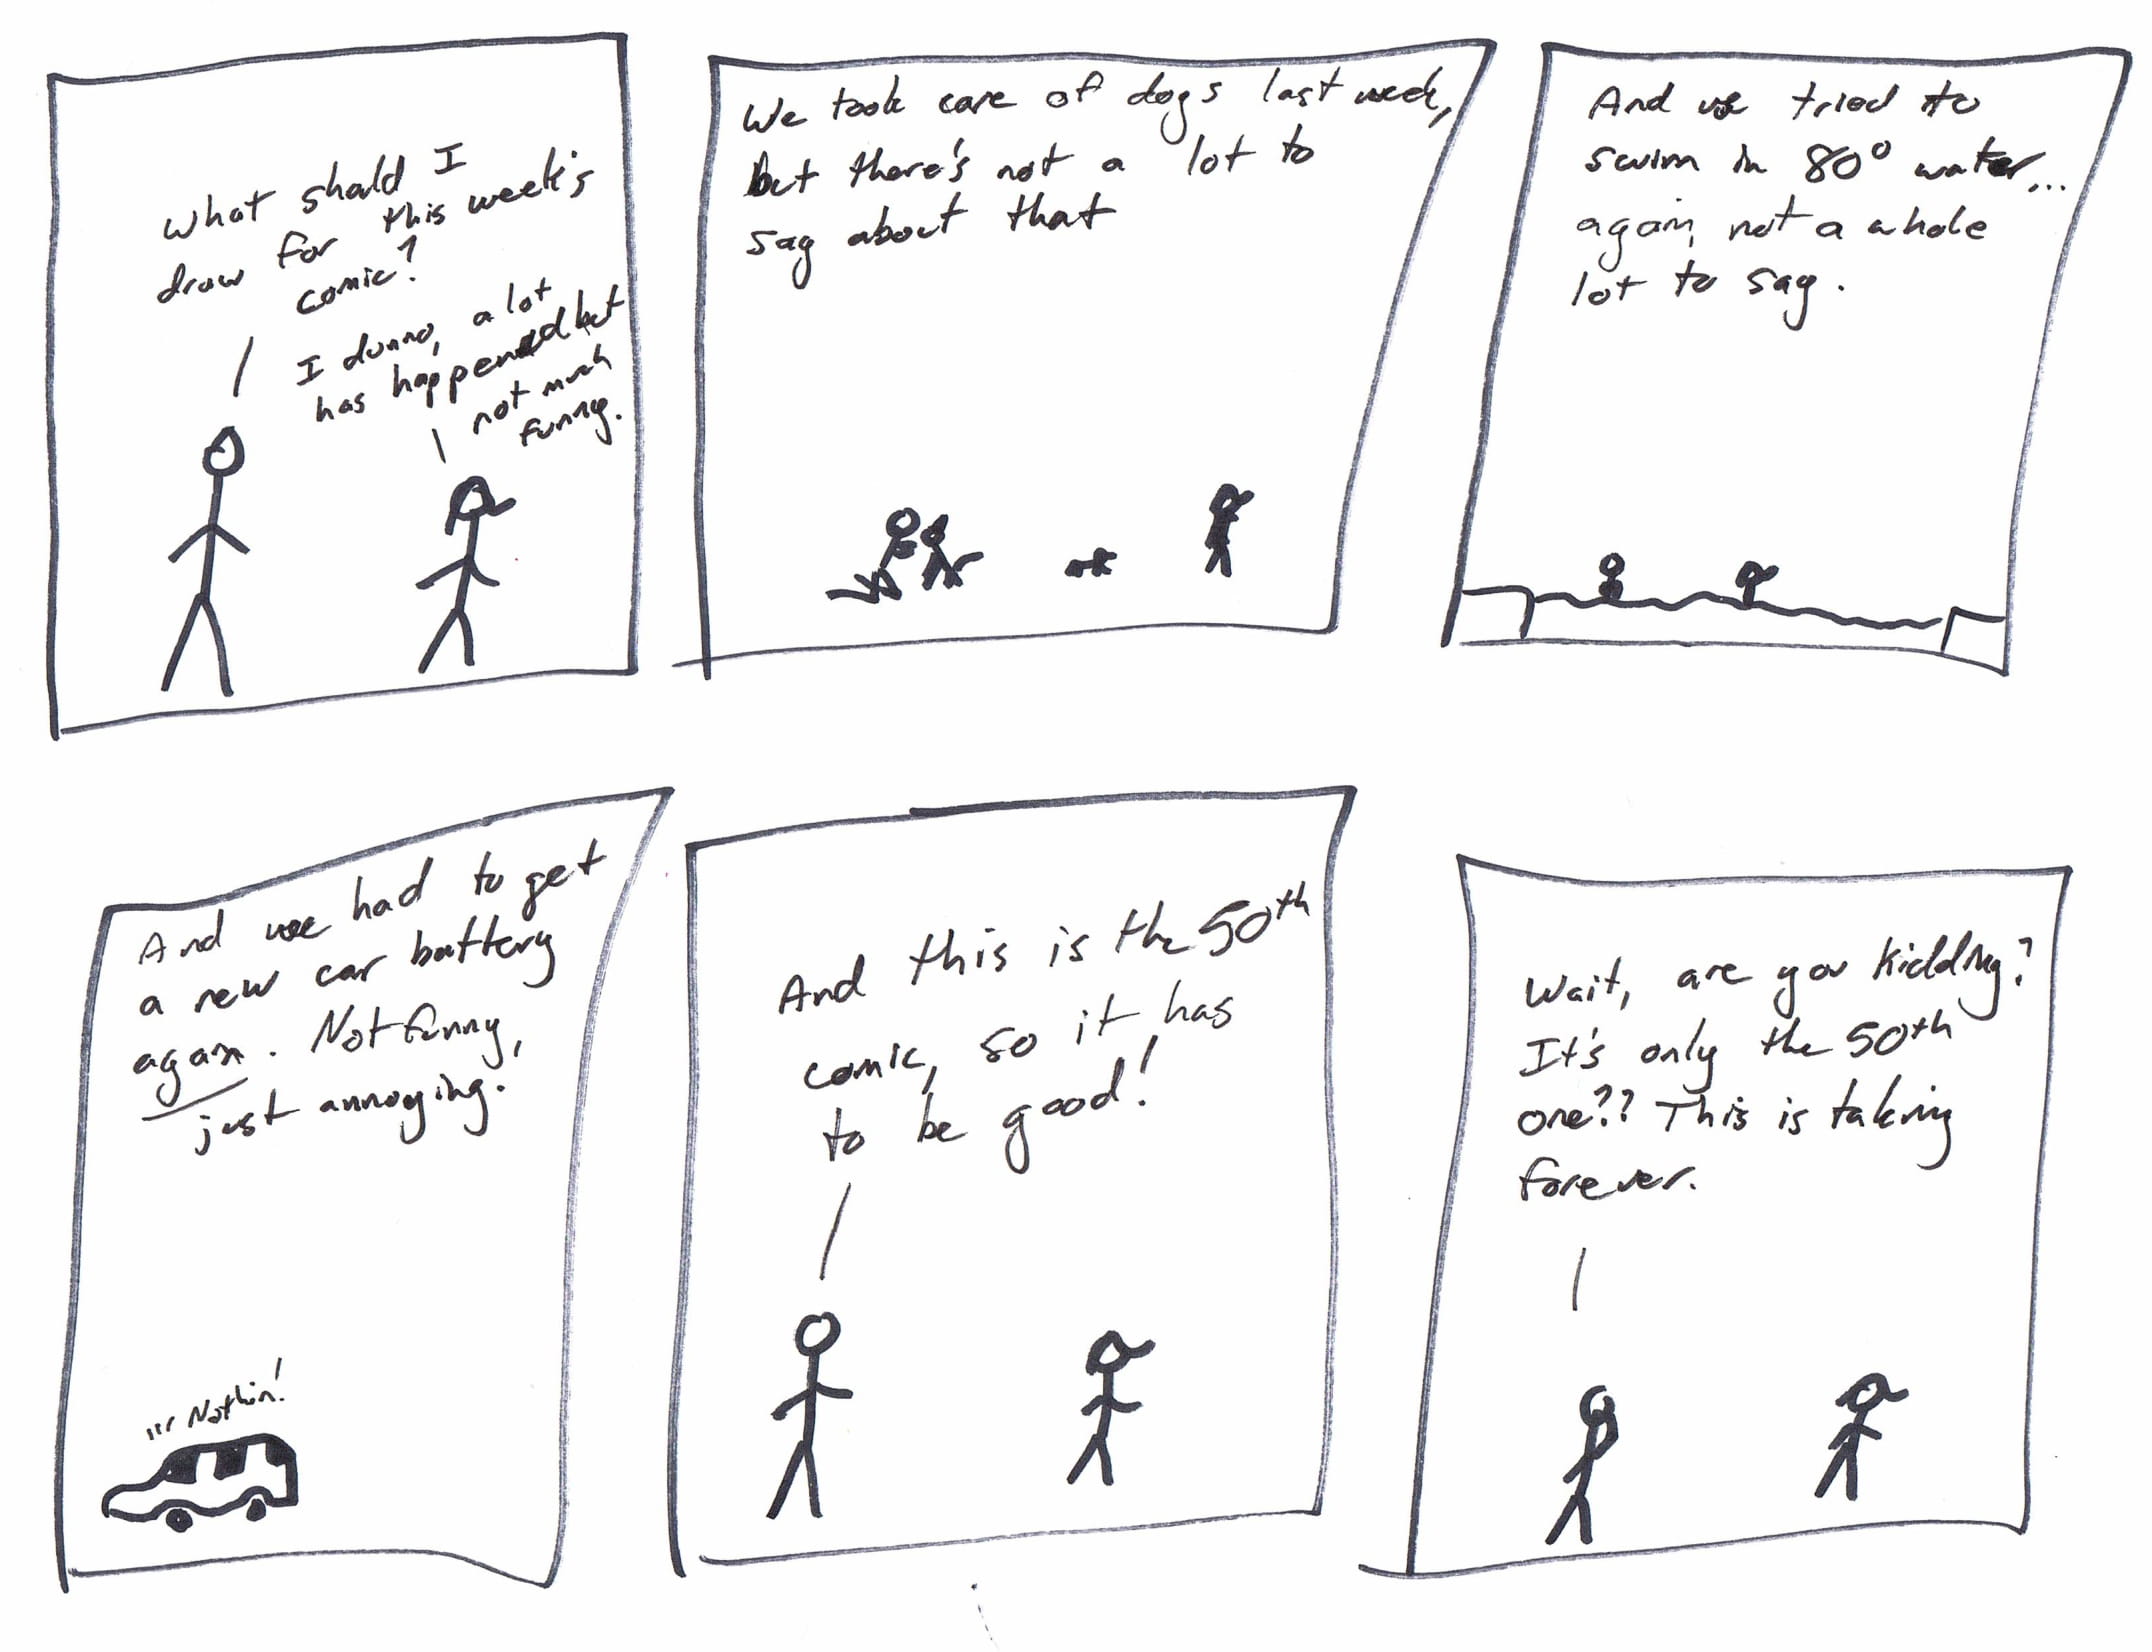 What should I
draw for this week's
comic?
I dunno, a lot
has happened but
not much
funny.
We took care of dogs last week,
but there's not a lot to
say about that
And we tried to
swim in 80° water...
again, not a whole
lot to say.
And we had to get
a new car battery
again. Not funny,
just annoying.
... Nothin!
And this is the 50th
comic, so it has
to be good!
Wait, are you kidding?
It's only the 50th
one?? This is taking
forever.